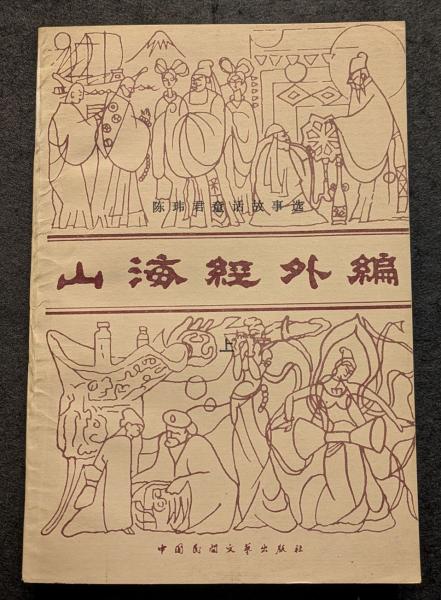 陈玮君童话故事选
山海經外編
上
中国民间文艺出版社